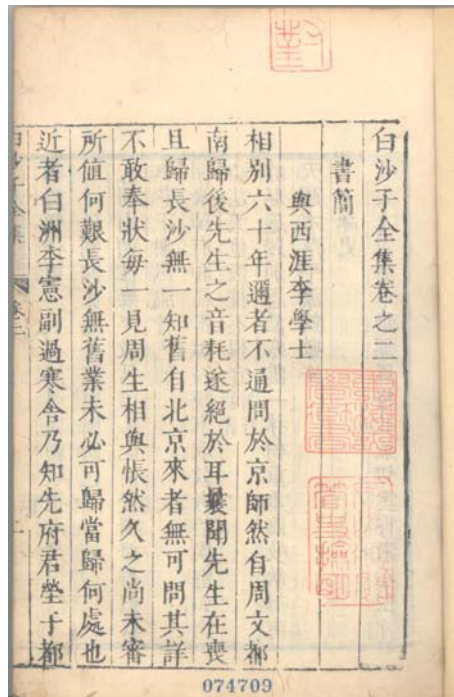 白沙子全集卷之二
書簡
與西涯李學士
相別六十年邇者不通問於京師然自周文都
南歸後先生之音耗遂絕於耳曩聞先生在喪
且歸長沙無一知舊自北京來者無可問其詳
不敢奉狀每一見周生相與悵然久之尚未審
所值何艱長沙無舊業未必可歸當歸何處也
近者白洲李憲副過寒舍乃知先府君塋于都
白沙子全集
卷二
一
074709